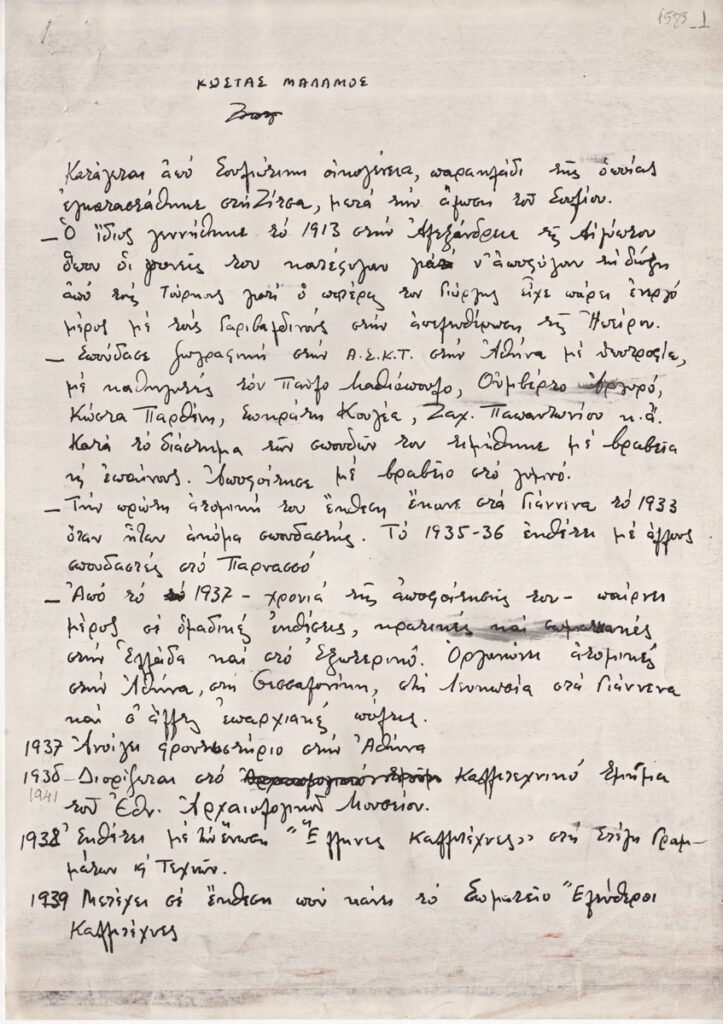 1583_1
ΚΩΣΤΑΣ ΜΑΛΑΜΟΣ
Κατάγεται ἀπό Σουλιώτικη οἰκογένεια, παρακλάδι τῆς ὁποίας
ἐγκαταστάθηκε στή Ζίτσα, μετά τήν ἅλωση τοῦ Σουλίου.
– Ὁ ἴδιος γεννήθηκε τό 1913 στήν Ἀλεξάνδρεια τῆς Αἰγύπτου
ὅπου οἱ γονεῖς του κατέφυγαν γιά ν' ἀποφύγουν τή δίωξη
ἀπό τούς Τούρκους γιατί ὁ πατέρας του Γιώργης εἶχε πάρει ἐνεργό
μέρος μέ τούς Γαριβαλδινούς στήν ἀπελευθέρωση τῆς Ἠπείρου.
– Σπούδασε ζωγραφική στήν Α.Σ.Κ.Τ. στήν Ἀθήνα μέ ὑποτροφία,
μέ καθηγητές τόν Παῦλο Μαθιόπουλο, Οὐμβέρτο Ἀργυρό,
Κώστα Παρθένη, Σωκράτη Κουγέα, Ζαχ. Παπαντωνίου κ.ἄ.
Κατά τό διάστημα τῶν σπουδῶν του τιμήθηκε μέ βραβεῖα
κι ἐπαίνους. Ἀποφοίτησε μέ βραβεῖο στό γυμνό.
– Τήν πρώτη ἀτομική του ἔκθεση ἔκανε στά Γιάννινα τό 1933
ὅταν ἦταν ἀκόμα σπουδαστής. Τό 1935-36 ἐκθέτει μέ ἄλλους
σπουδαστές στό Παρνασσό
– Ἀπό τό 1937 – χρονιά τῆς ἀποφοίτησής του – παίρνει
μέρος σέ ὁμαδικές ἐκθέσεις, κρατικές καί σωματειακές
στήν Ἑλλάδα καί στό Ἐξωτερικό. Ὀργανώνει ἀτομικές
στήν Ἀθήνα, στή Θεσσαλονίκη, στή Λευκωσία στά Γιάννενα
καί σ' ἄλλες ἐπαρχιακές πόλεις.
1937 Ἀνοίγει φροντιστήριο στήν Ἀθήνα
1936 – Διορίζεται στό Καλλιτεχνικό τμῆμα
1941 τοῦ Ἐθν. Ἀρχαιολογικοῦ Μουσείου.
1938 Ἐκθέτει μέ τήν ἕνωση "Ἕλληνες Καλλιτέχνες" στή Στέγη Γραμ-
μάτων κ' Τεχνῶν.
1939 Μετέχει σέ ἔκθεση πού κάνει τό Σωματεῖο "Ἐλεύθεροι
Καλλιτέχνες